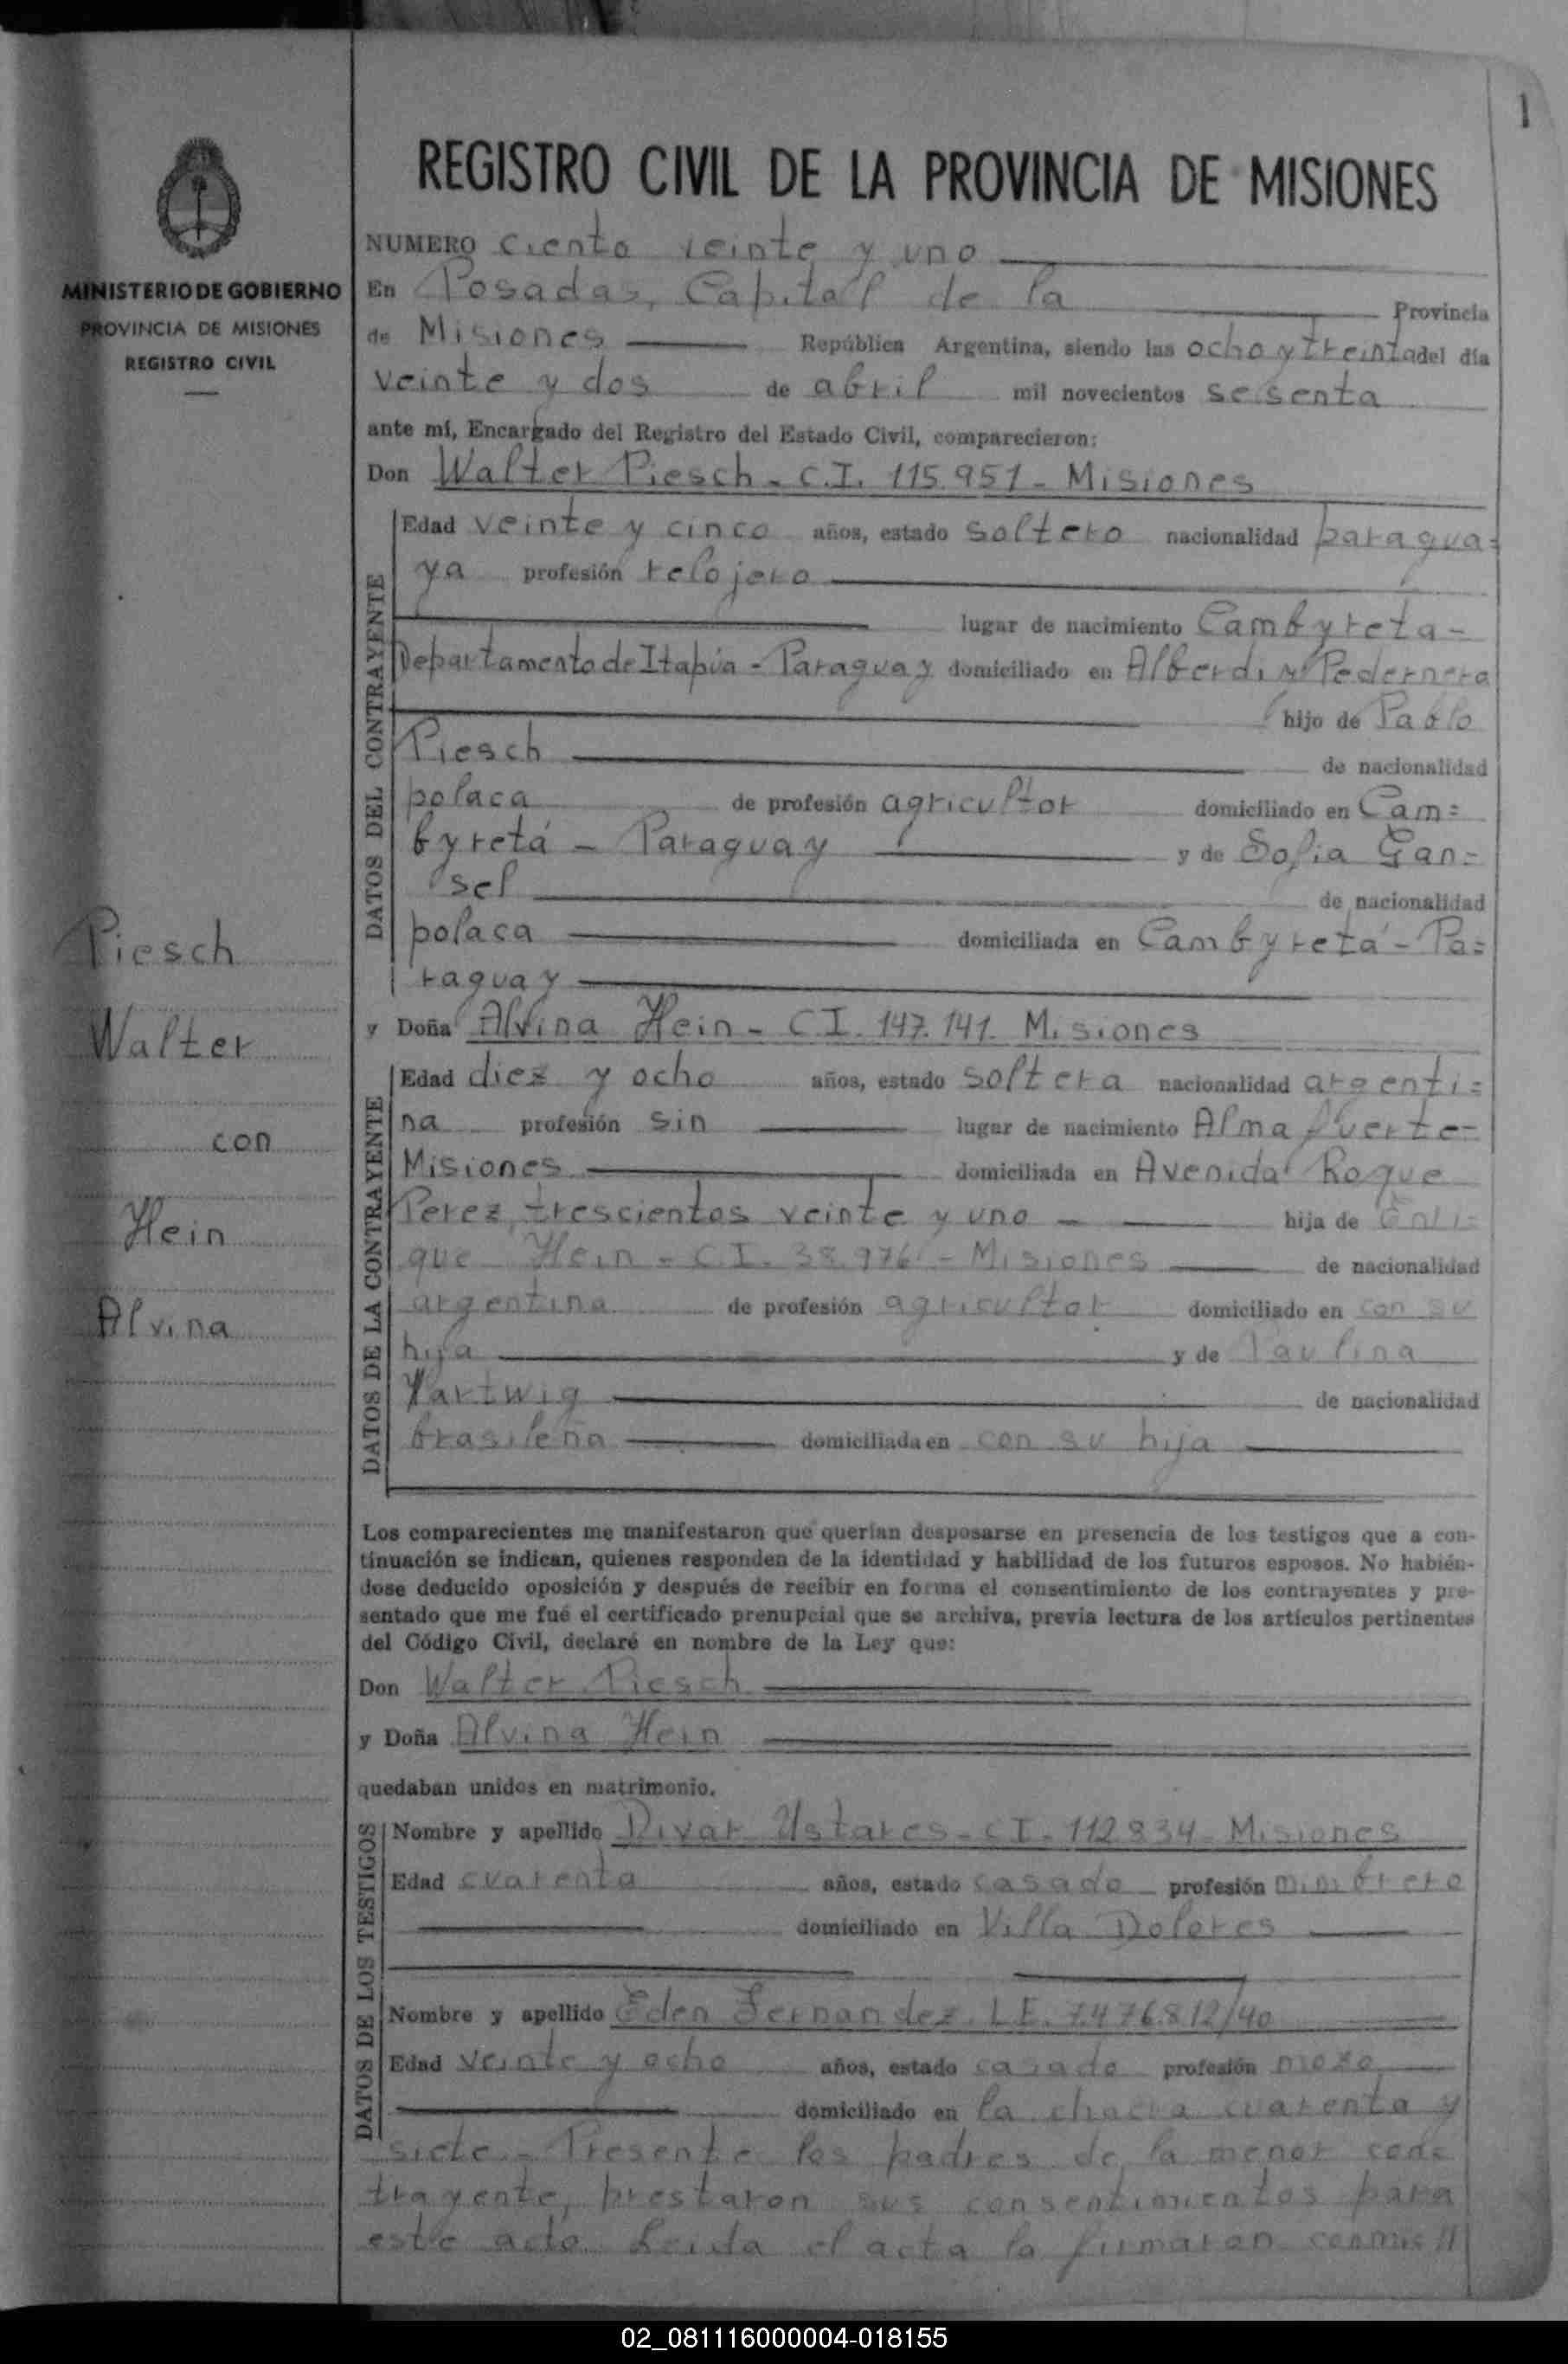 1
REGISTRO CIVIL DE LA PROVINCIA DE MISIONES
MINISTERIO DE GOBIERNO
PROVINCIA DE MISIONES
REGISTRO CIVIL
Piesch
Walter
con
Hein
Alvina
NUMERO Ciento veinte y uno
En Posadas, Capital de la Provincia
de Misiones República Argentina, siendo las ocho y treinta del día
veinte y dos de abril mil novecientos sesenta
ante mí, Encargado del Registro del Estado Civil, comparecieron:
Don Walter Piesch - C.I. 115.951 - Misiones
DATOS DEL CONTRAYENTE
Edad veinte y cinco años, estado soltero nacionalidad paragua=
ya profesión relojero
lugar de nacimiento Cambyreta -
Departamento de Itapúa - Paraguay domiciliado en Alberdi y Pedernera
hijo de Pablo
Piesch de nacionalidad
polaca de profesión agricultor domiciliado en Cam=
byretá - Paraguay y de Sofia Gan=
sel de nacionalidad
polaca domiciliada en Cambyretá - Pa=
raguay
y Doña Alvina Hein - C.I. 147.141. Misiones
DATOS DE LA CONTRAYENTE
Edad diez y ocho años, estado soltera nacionalidad argenti=
na profesión sin lugar de nacimiento Alma fuerte -
Misiones domiciliada en Avenida Roque
Perez, trescientos veinte y uno - hija de Enri=
que Hein - C.I. 38.976 - Misiones de nacionalidad
argentina de profesión agricultor domiciliado en con su
hija y de Paulina
Hartwig de nacionalidad
brasileña domiciliada en con su hija
Los comparecientes me manifestaron que querían desposarse en presencia de los testigos que a con-
tinuación se indican, quienes responden de la identidad y habilidad de los futuros esposos. No habién-
dose deducido oposición y después de recibir en forma el consentimiento de los contrayentes y pre-
sentado que me fué el certificado prenupcial que se archiva, previa lectura de los artículos pertinentes
del Código Civil, declaré en nombre de la Ley que:
Don Walter Piesch
y Doña Alvina Hein
quedaban unidos en matrimonio.
DATOS DE LOS TESTIGOS
Nombre y apellido Divar Ustares - C.I. 112.834 - Misiones
Edad cuarenta años, estado casado profesión mimbrero
domiciliado en Villa Dolores
Nombre y apellido Eden Fernandez. L.E. 7.476.812/40
Edad veinte y ocho años, estado casado profesión mozo
domiciliado en la chacra cuarenta y
siete. - Presente los padres de la menor con=
trayente, prestaron sus consentimientos para
este acto. Leida el acta la firmaron conmi= //
02_081116000004-018155